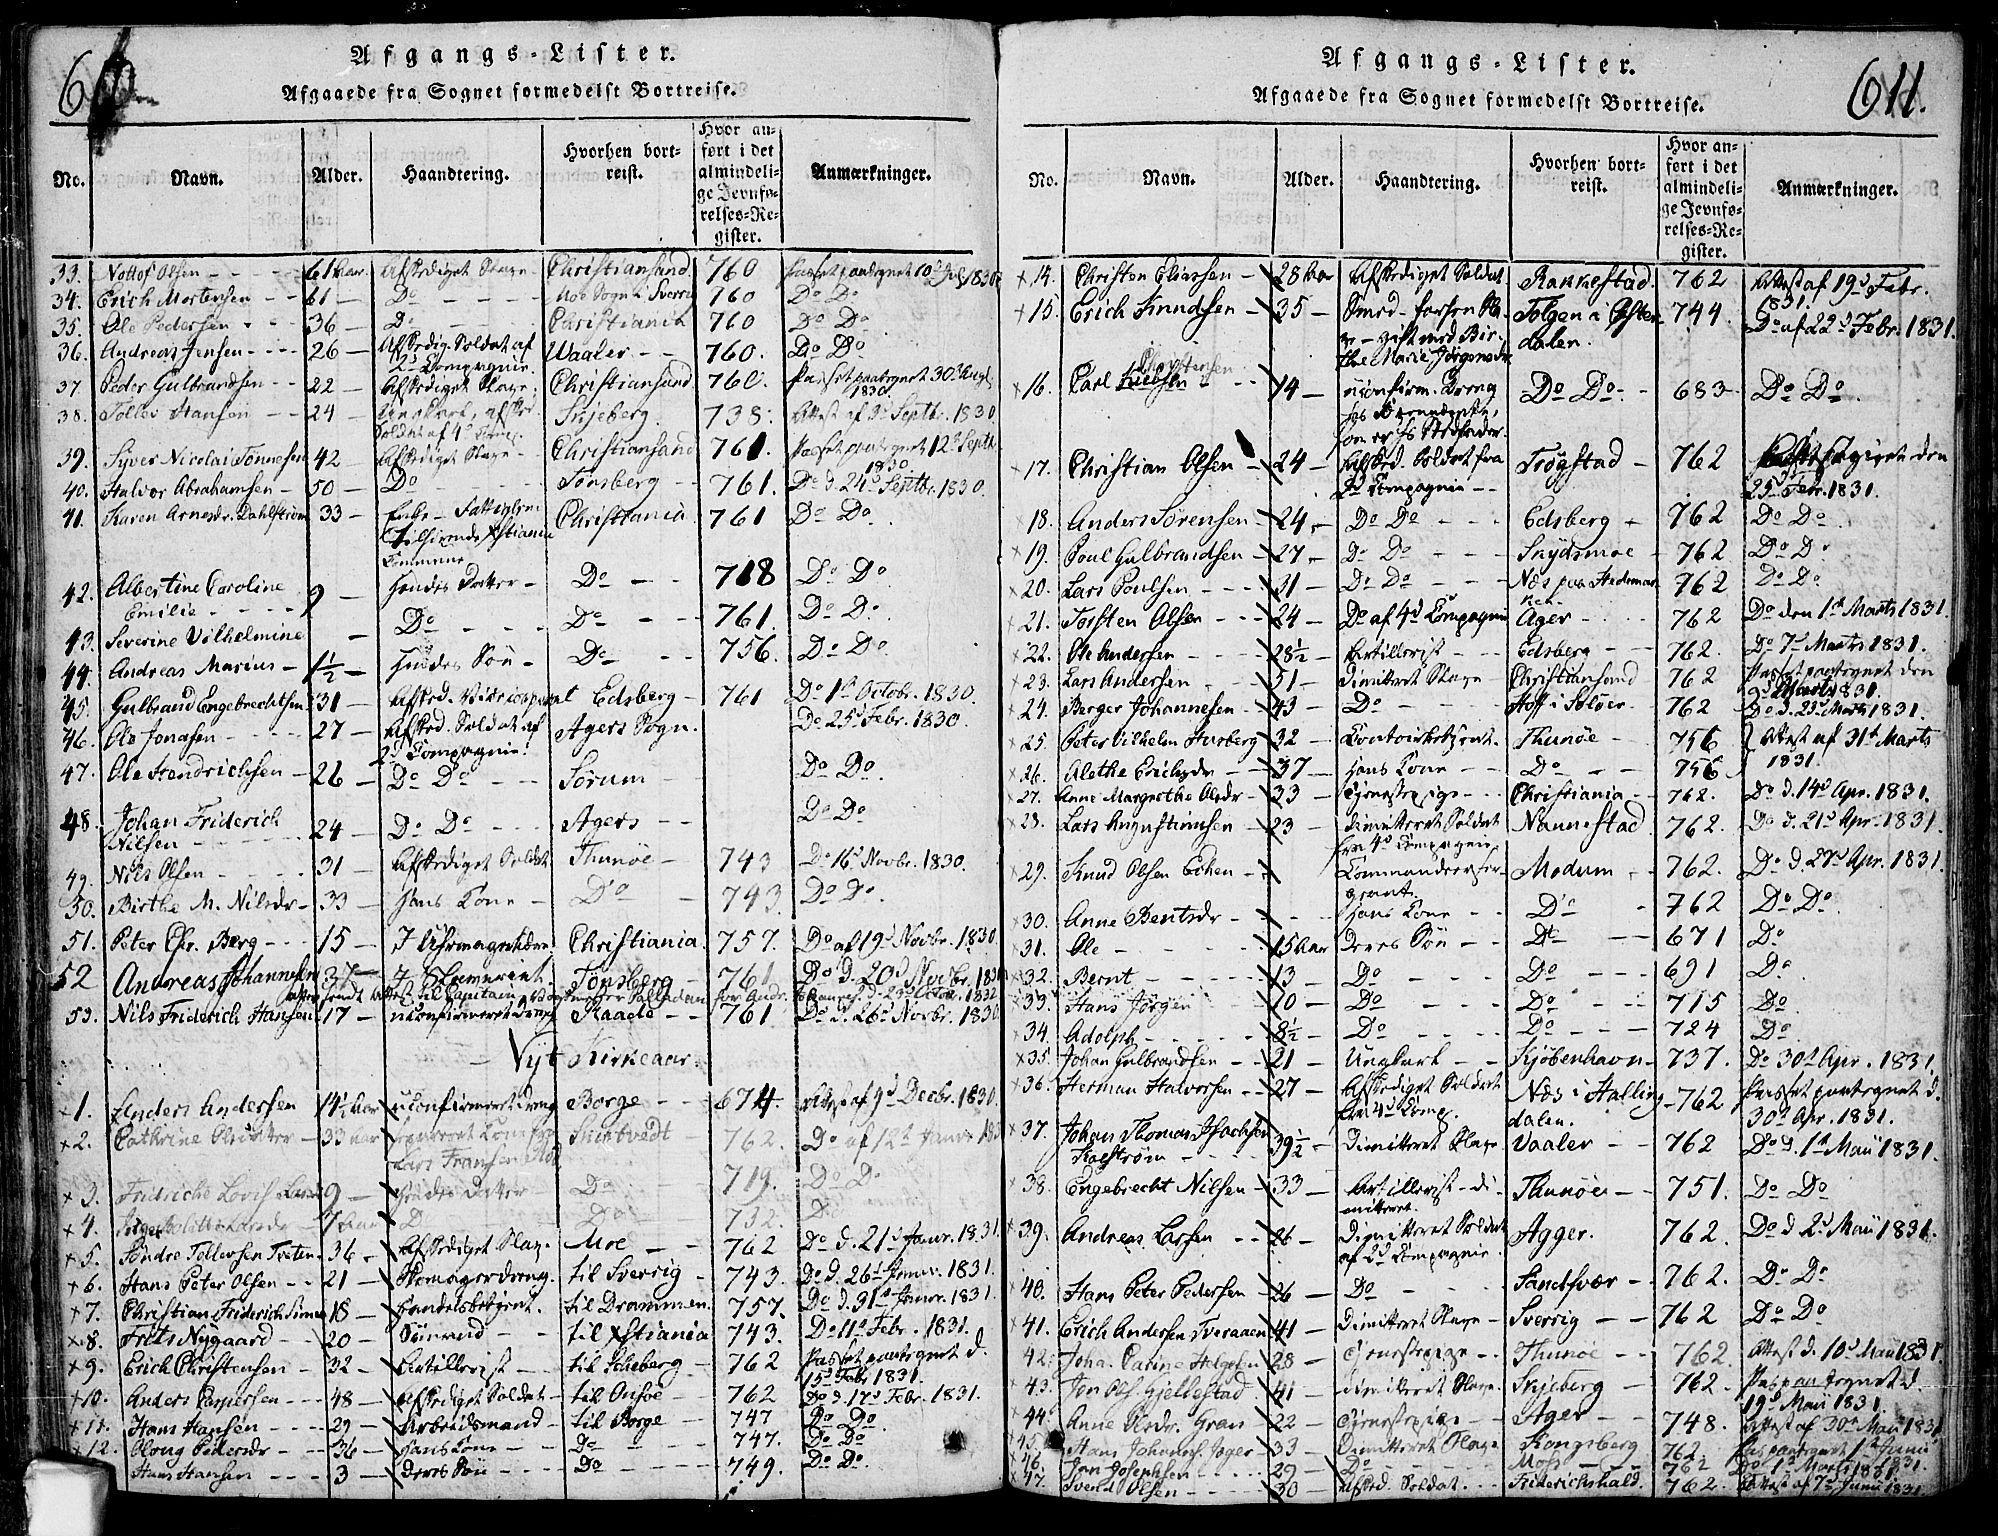 610
Afgangs-Lister.
Afgaaede fra Sognet formedelst Bortreise.
No. Navn. Alder. Haandtering. Hvorhen bort-reist. Hvor an-ført i det almindeli-ge Jevnfø-relses-Re-gister. Anmærkninger.
33. Nottof Olsen 61 Aar Afskediget Slave Christiansand 760 Passet paategnet 10d Juli 1830
34. Erich Mortensen 61 Do Moe Sogn i Sverrig 760 Do Do
35. Ole Pedersen 36 Do Christiania 760 Do Do
36. Andreas Jensen 26 Afskedig. Soldat af 2d Compagnie Waaler 760. Do Do
37 Peder Gulbrandsen 22 Afskediget Slave Christiansand 760. Passet paategnet 30d Aug. 1830.
38. Tollev Hansen 24 Ungkarl, afsked. Soldat af 4d Comp. Skjeberg 738. Attest af 3d Septbr. 1830
39. Syver Nicolai Tønnesen 42 Afskediget Slave Christiansand 761 Passet paategnet 12d Septbr 1830
40. Halvor Abrahamsen 50 Do Tønsberg 761. Do d. 24d Septbr. 1830.
41. Karen Arnesdr. Dahlstrøm 33 Enke - Fattiglem tilhørende Xstiania Commune Christiania 761 Do Do
42. Albertine Caroline Emilie 9 Hendes Datter Do 718 Do Do
43. Severine Vilhelmine Do Do 761. Do Do
44. Andreas Marius 1½ Hendes Søn Do 756. Do Do
45. Gulbrand Engebrechtsen 31 Afsked. Vicecorporal Edsberg 761 Do 1d Octobr. 1830.
46. Ole Jonasen 27 Afsked. Soldat af 2d Compagnie Agers Sogn. Do 25d Febr. 1830.
47. Ole Hendrichsen 26 Do Do Sørum Do Do
48. Johan Friderich Nilsen 24 Do Do Agers Do Do
49. Nils Olsen 31 Afskediget Soldat Thunøe 743 Do 16d Novbr. 1830.
50. Birthe M. Nilsdr 33 Hans Kone Do 743. Do Do
51. Peter Chr. Berg 15 I Uhrmagerlære Christiania. 757. Do af 19d Novbr. 1830.
52 Andreas Johannesen 37 Tønsberg 761 Do d. 20d Novbr. 1830
53. Nils Friderich Hansen 17 uconfirmeret Dreng Raade 761 Do d. 26d Novbr. 1830
Nyt Kirkeaar.
1. Anders Andersen 14½ Aar uconfirmeret Dreng Borge 674. Attest af 9d Decbr. 1830.
2. Cathrine Olsdatter 33 Aar separeret Kone fra Lars Fransen Skiptvedt 762. Do af 12d Januar
3. Fridriche Lovise 9 Hendes Datter Do 719. Do Do
4. 7 Aar Do Do 732. Do
5. Søndre Tollevsen Tveten 36. Afskediget Slave Moe 762 Do d. 21d Janr. 1831.
6. Hans Peter Olsen 21 Skomagerdreng til Sverrig 743. Do d. 26d Janr. 1831.
7. Christian Friderich 18 Handelsbetjent. til Drammen. 757. Do d. 31d Janr. 1831.
8. Frits Nygaard 20 Sømand til Xstiania 743. Do 11d Febr. 1831.
9. Erich Christensen 32 Artillerist til Scheberg 762 Passet paategnet d. 15d Febr 1831.
10. Anders Caspersen 48 Afskediget Soldat til Onsøe 762 Do d. 17d Febr. 1831.
11. Hans Hansen 29 Arbeidsmand til Borge 747 Do Do
12. Olong Pedersdr 36 Hans Kone Do 747. Do Do
Hans Hansen 3 Deres Søn Do 749. Do Do
611.
Afgangs-Lister.
Afgaaede fra Sognet formedelst Bortreise.
No. Navn. Alder. Haandtering. Hvorhen bort-reist. Hvor an-ført i det almindeli-ge Jevnfø-relses-Re-gister. Anmærkninger.
14. Christen Eliassen 28 Aar Afskediget Soldat Rakkestad. 762 Attest af 19d Febr. 1831.
15. Erich Knudsen 35 Smed gift med Birthe Marie Jørgensdr Tolgen i Østerdalen. 744. Do af 22d Febr. 1831.
16. Carl 14 uconfirm. Dreng Do Do 683 Do Do
17. Christian Olsen 24 Afsked. Soldat fra 2d Compagnie Trøgstad 762 25d Febr. 1831.
18. Anders Sørensen 24 Do Do Edsberg 762 Do Do
19. Poul Gulbrandsen 27 Do Do Skydsmoe 762 Do Do
20. Lars Poulsen 31 Do Do Næs paa Hedemarken. 762 Do Do
21. Torsten Olsen 24 Do af 4d Compagnie Ager 762 Do den 1d Marts 1831.
22. Ole Andersen 28½ Artillerist Edsberg 762. Do 7d Marts 1831.
23. Lars Andersen 51 Dimitteret Slave Christiansand 762 Passet paategnet den 9d Marts 1831.
24. Berger Johannesen 43 Do Hoff i Soløer 762 Do d. 23d Marts 1831.
25. Peter Vilhelm Husberg 32 Contoirbetjent. Thunøe 756 Attest af 31d Marts 1831.
26. Alethe Erichsdr 37 Hans Kone Do 756
27. Anne Margrethe Olsdr 33 Tjenestepige Christiania 762. Do d. 14d Apr. 1831.
28. Lars Augustinusen 23 Dimitteret Soldat fra 4d Compagnie Nannestad 762. Do d. 21d Apr. 1831
29. Knud Olsen Echen Commandeersergeant Modum 762. Do d. 27d Apr. 1831
30. Anne Bentsdr Hans Kone Do 762 Do Do
31. Ole 15 Aar Deres Søn Do 671 Do
32. Bernt 13 Do Do 691 Do
33. Hans Jørgen 10 Do Do 715 Do
34. Adolph 8½ Do Do 724 Do
35. Johan Gulbrandsen 21 Ungkarl Kjøbenhavn 737. Do 30d Apr. 1831.
36. Herman Halvorsen 27 Afskediget Soldat fra 4d Comp. Næs i Hallingdalen. 762 Passet paategnet d. 30d Apr. 1831.
37. Johan Thomas Isachsen Kaalstrøm 39½ Dimitteret Slave Vaaler 762 Do d. 1d Maii 1831.
38. Engebrecht Nilsen 33 Artillerist dimitteret. Thunøe 751. Do Do
39. Andreas Larsen 26 Dimitteret Soldat af 2d Compagnie Agger. 762. Do d 2d Maii 1831.
40. Hans Peter Pedersen 26 Do Sandsvær 762. Do Do
41. Erich Andersen Tveraaen 41 Dimitteret Slave Sverrig 762 Do Do
42. Joha. Carine Helgesen 28 Tjenestepige Thunøe 762. Attest d. 10d Maii 1831.
43. Jon Ols. Gjellestad 41 Dimitteret Slave Skjeberg 762. Pas paategnet d 19d Maii 1831.
44. Anne Olsdr. Gran 22 Tjenestepige Ager 748. Attest af 30d Maii 1831
45. Hans Johannes. Jager 33 Dimitteret Slave Kongsberg 762. Pas paategnet 1d Junii
46. Jon Josephsen 29 Do Moss 762 Do 1d Marts 1831.
47. Svend Olsen 30 Afsked. Soldat Friderichshald. 762. Attest af 7d Junii 1831.